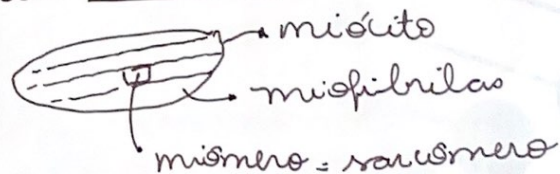 miócito
miofibrilas
miômero = sarcômero